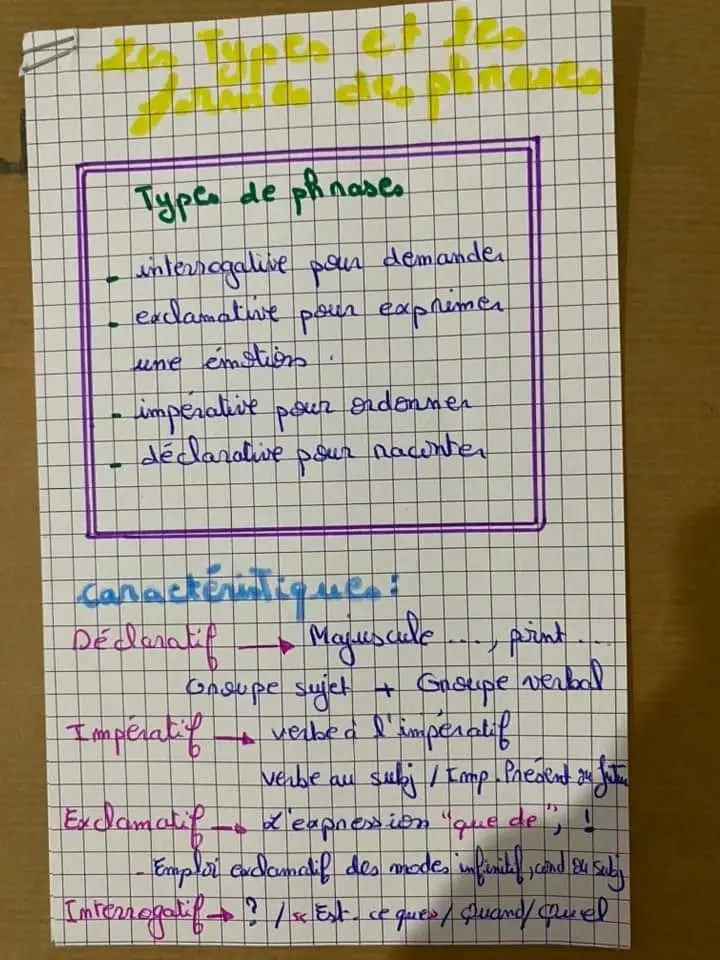 Les Types et les
formes des phrases
Types de phrases
- interrogative pour demander
- exclamative pour exprimer
une émotion.
- impérative pour ordonner
- déclarative pour raconter
caractéristiques :
Déclaratif → Majuscule ..., point ...
Groupe sujet + Groupe verbal
Impératif → verbe à l'impératif
verbe au subj / Imp. Présent ou futur
Exclamatif → L'expression "que de", !
- Emploi exclamatif des modes infinitif, cond ou subj
Interrogatif → ? / « Est-ce que » / Quand / Quel